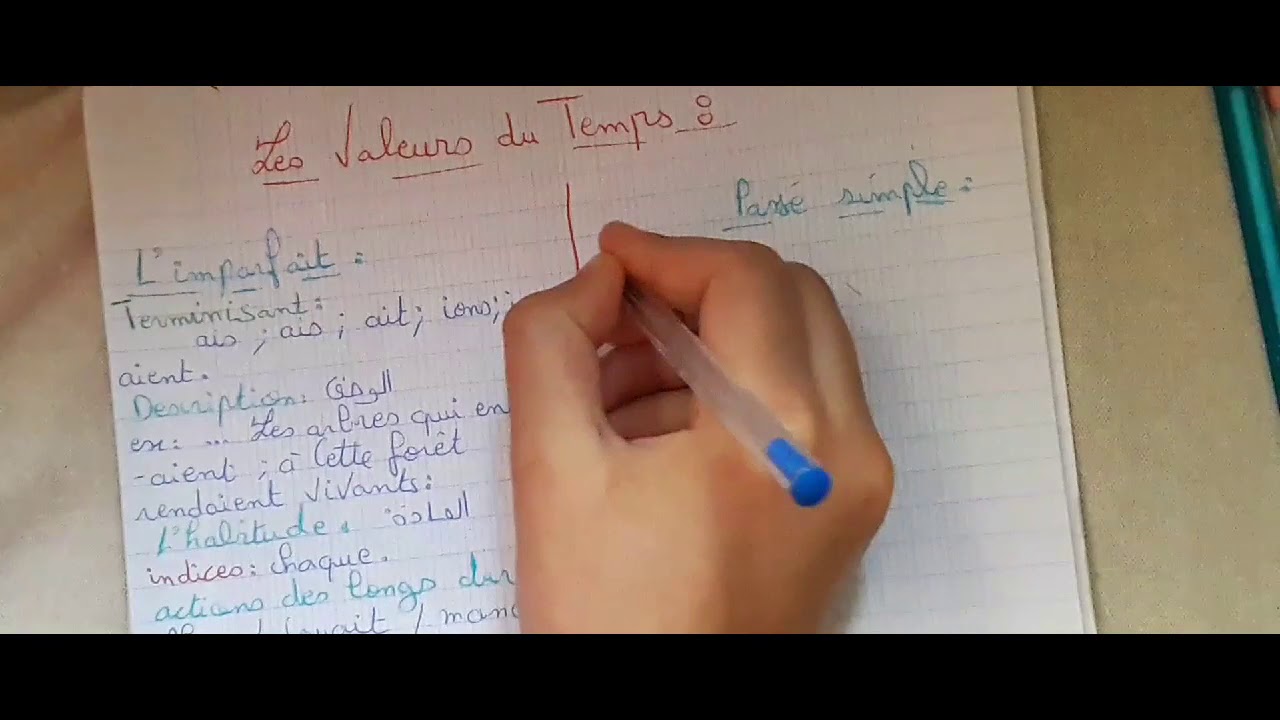 Les Valeurs du Temps :
Passé simple :
L'imparfait :
Terminisant :
ais ; ais ; ait ; ions ;
aient.
Description : الوصف
ex : ... Les arbres qui en
-aient ; à Cette forêt
rendaient vivants :
L'habitude : العادة
indices : chaque.
actions des longs dur